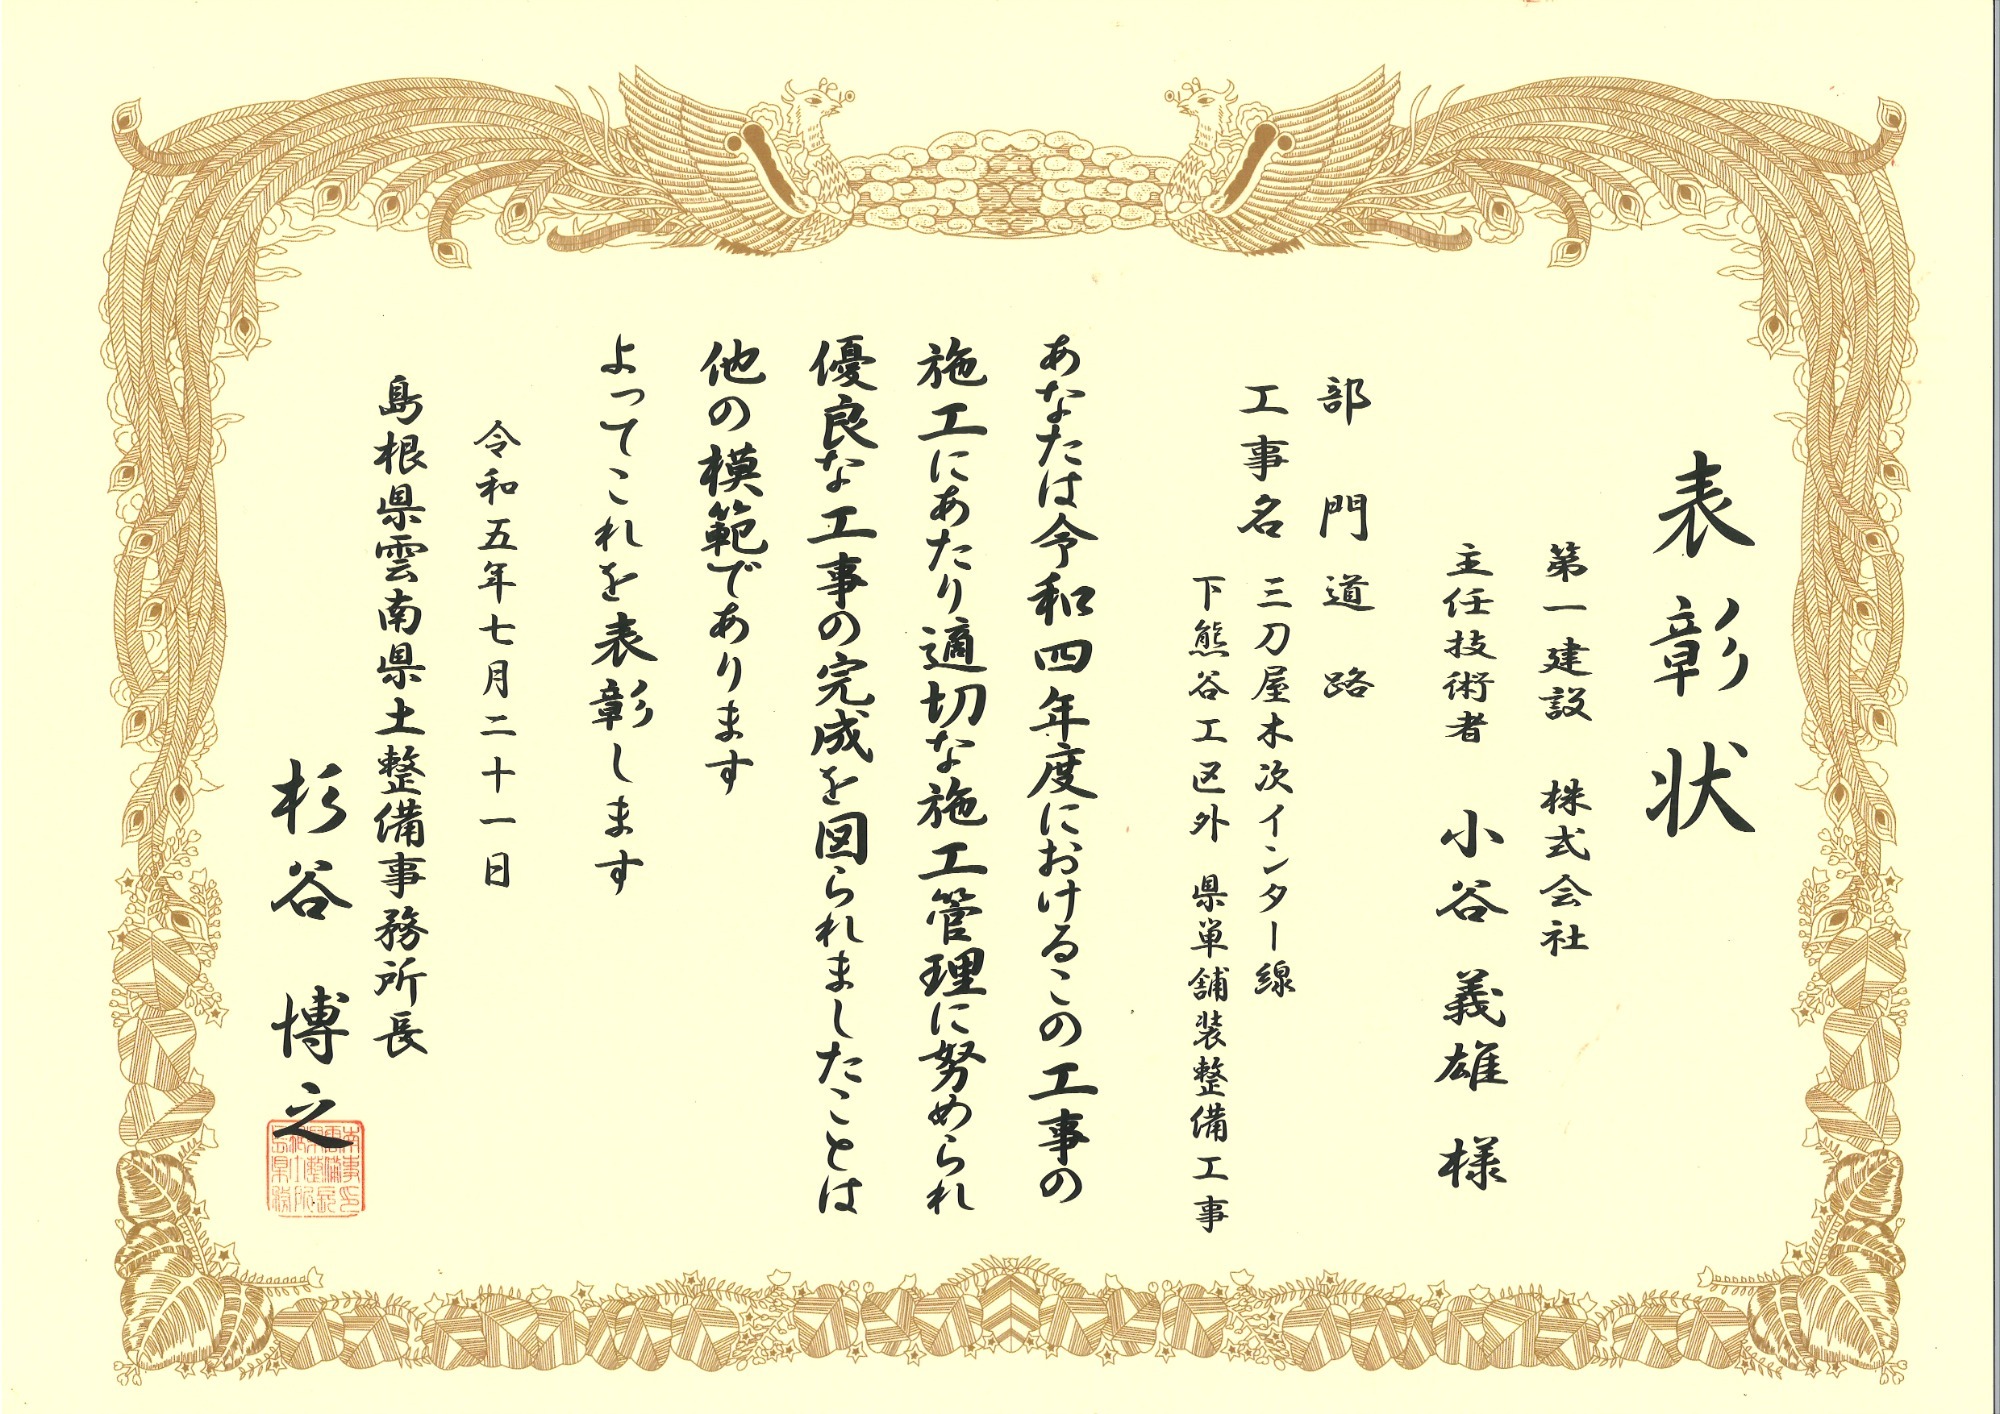 表彰状
第一建設　株式会社
主任技術者　小谷　義雄　様
部門　道路
工事名　三刀屋木次インター線
下熊谷工区外　県単舗装整備工事
あなたは令和四年度におけるこの工事の
施工にあたり適切な施工管理に努められ
優良な工事の完成を図られましたことは
他の模範であります
よってこれを表彰します
令和五年七月二十一日
島根県雲南県土整備事務所長
杉谷　博之